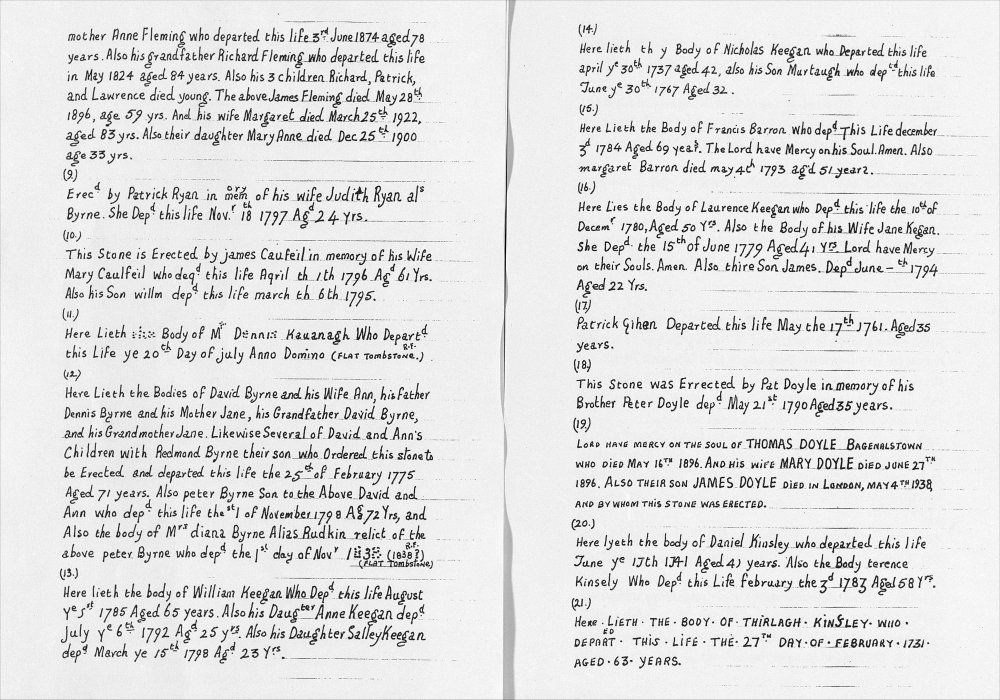 mother Anne Fleming who departed this life 3rd June 1874 aged 78
years. Also his grandfather Richard Fleming who departed this life
in May 1824 aged 84 years. Also his 3 children Richard, Patrick,
and Lawrence died young. The above James Fleming died May 28th
1896, age 59 yrs. And his wife Margaret died March 25th 1922,
aged 83 yrs. Also their daughter Mary Anne died Dec 25th 1900
age 33 yrs.
(9)
Erecd by Patrick Ryan in mem ory of his wife Judith Ryan als
Byrne. She Depd this life Novr 18 th 1797 Agd 24 yrs.
(10.)
This Stone is Erected by james Caufeil in memory of his Wife
Mary Caulfeil who deqd this life Aqril th 1th 1796 Agd 61 Yrs.
Also his Son willm depd this life march th 6th 1795.
(11.)
Here Lieth Body of Mr Dennis Kauanagh Who Departd
this Life ye 20th Day of july Anno Domino (FLAT TOMBSTONE. R.F.)
(12)
Here Lieth the Bodies of David Byrne and his Wife Ann, his father
Dennis Byrne and his Mother Jane, his Grandfather David Byrne,
and his Grandmother Jane. Likewise Several of David and Ann's
Children with Redmond Byrne their son who Ordered this stone to
be Erected and departed this life the 25th of February 1775
Aged 71 years. Also peter Byrne Son to the Above David and
Ann who depd this life the st1 of November 1798 Ag 72 Yrs, and
Also the body of Mrs diana Byrne Alias Rudkin relict of the
above peter Byrne who depd the 1st day of Novr (1838?) R.F.
(FLAT TOMBSTONE)
(13.)
Here lieth the body of William Keegan Who Depd this life August
Ye 5st 1785 Aged 65 years. Also his Daugter Anne Keegan depd
july ye 6th 1792 Agd 25 yrs. Also his Daughter Salley Keegan
depd March ye 15th 1798 Agd 23 Yrs.
(14.)
Here lieth th y Body of Nicholas Keegan who Departed this life
april ye 30th 1737 aged 42, also his Son Murtaugh who dep this life
June ye 30th 1767 Aged 32.
(15.)
Here Lieth the Body of Francis Barron who depd This Life december
3d 1784 Aged 69 years. The Lord have Mercy on his Soul. Amen. Also
margaret Barron died may 4th 1793 agd 51 years.
(16.)
Here Lies the Body of Laurence Keegan who Depd this life the 10th of
Decemr 1780, Aged 50 Yrs. Also the Body of his Wife Jane Kegan.
She Depd the 15th of June 1779 Aged 41 Yrs. Lord have Mercy
on their Souls. Amen. Also thire Son James. Depd June - th 1794
Aged 22 Yrs.
(17)
Patrick Gihen Departed this life May the 17th 1761. Aged 35
years.
(18)
This Stone was Errected by Pat Doyle in memory of his
Brother Peter Doyle depd May 21st 1790 Aged 35 years.
(19)
LORD HAVE MERCY ON THE SOUL OF THOMAS DOYLE BAGENALSTOWN
WHO DIED MAY 16TH 1896. AND HIS WIFE MARY DOYLE DIED JUNE 27TH
1896. ALSO THEIR SON JAMES DOYLE DIED IN LONDON, MAY 4TH 1938,
AND BY WHOM THIS STONE WAS ERECTED.
(20.)
Here lyeth the body of Daniel Kinsley who departed this life
June ye 17th 1741 Aged 41 years. Also the Body terence
Kinsely Who Depd this Life february the 3d 1783 Aged 58 Yrs.
(21.)
HERE · LIETH · THE · BODY · OF · THIRLAGH · KINSLEY · WHO ·
DEPARTED · THIS · LIFE · THE · 27TH DAY · OF · FEBRUARY · 1731 ·
AGED · 63 · YEARS.